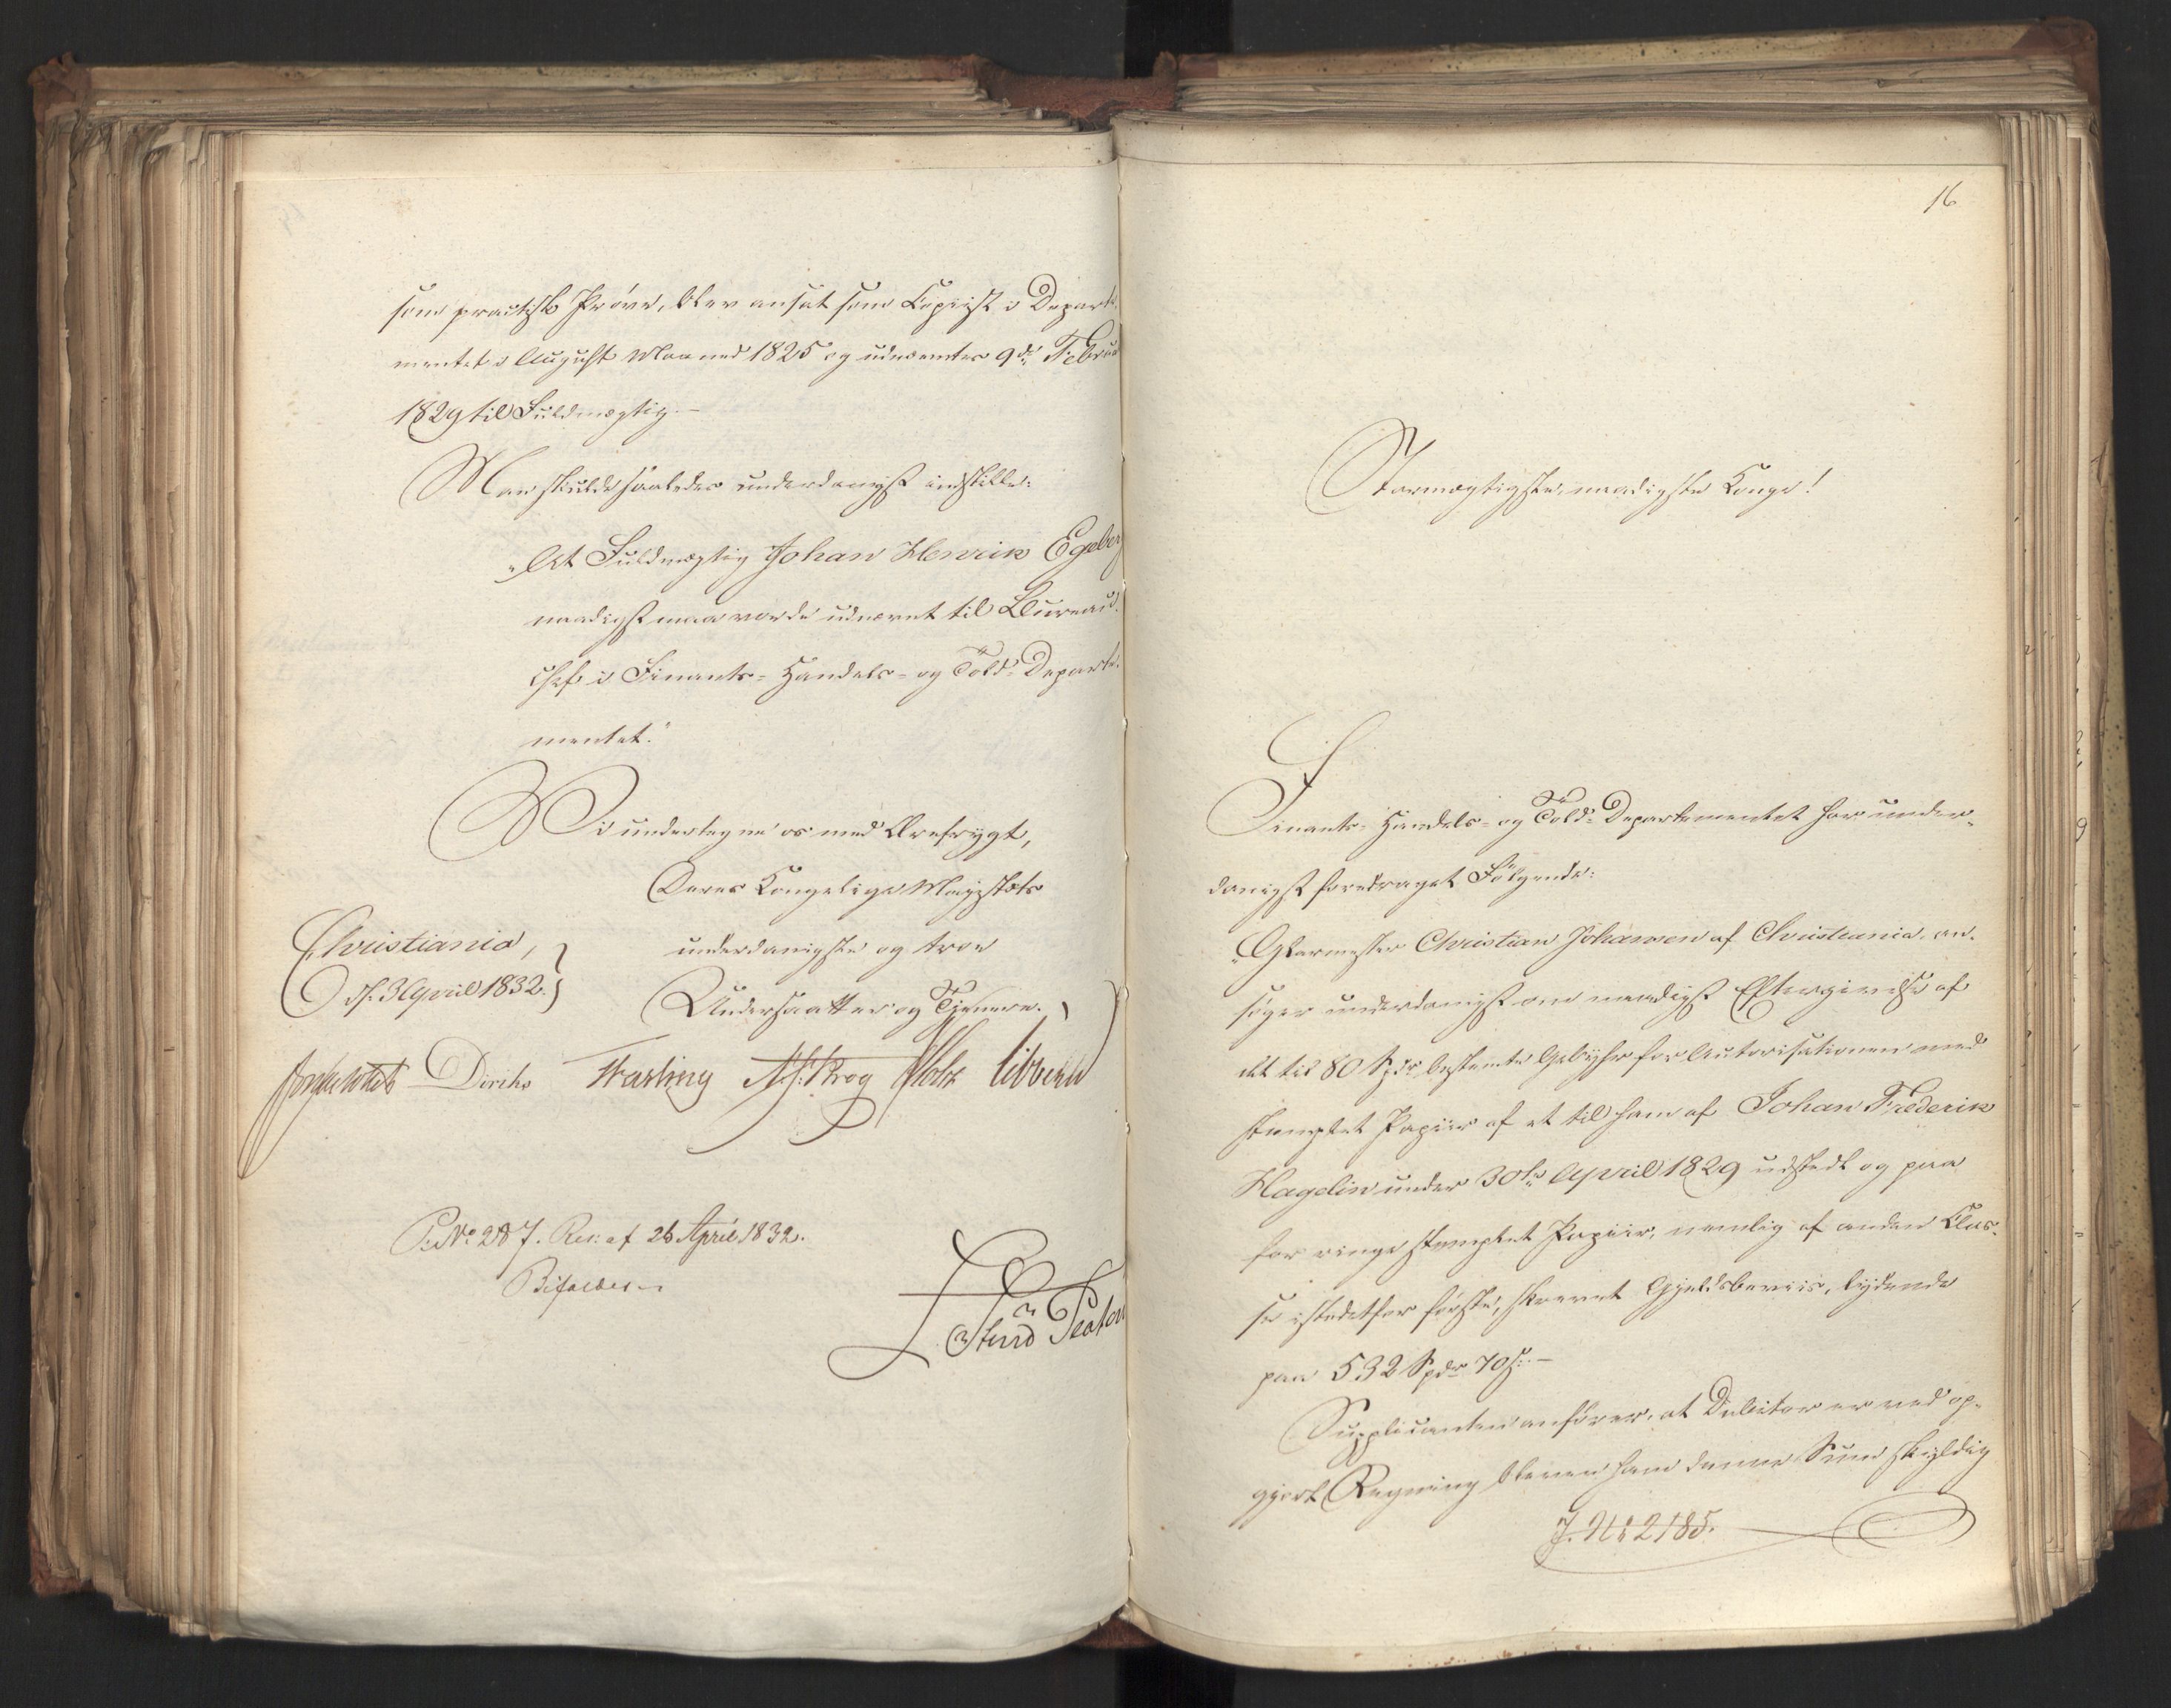 som practisk Prøve, blev ansat som Copiist i Departe-
mentet i August Maaned 1825 og udnævntes 9de Februar
1829 til Fuldmægtig.-
Man skulde saaledes underdanigst indstille:
"At Fuldmægtig Johan Henrik Egeberg
naadigst maa vorde udnævnt til Bureau-
chef i Finants- Handels- og Told-Departe-
mentet."
Vi undertegne os med Ærefrygt,
Deres Kongelige Majestæts
Christiania, underdanigste og troe
d. 3 April 1832. Undersaatter og Tjenere.
Diriks Fasting Krog Holst Vibe
P: No 287. Res: af 26 April 1832.
Bifaldes
16
Stormægtigste, naadigste Konge!
Finants- Handels- og Told-Departementet har under-
danigst foredraget Følgende:
"Glarmester Christian Johannesen af Christiania, an-
søger underdanigst om naadigst Eftergivelse af
det til 80 Spdr bestemte Gebyhr for Autorisationen med
stemplet Papiir af et til ham af Johan Frederik
Hagelin under 30te April 1829 udstedt og paa
for ringe stemplet Papiir, nemlig af anden Clas-
se istedetfor første, skrevet Gjeldsbeviis, lydende
paa 532 Spdr 70 s:-
Supplicanten anfører, at Debitor er ved op-
gjort Regning bleven ham denne Sum skyldig
J. No 2185.